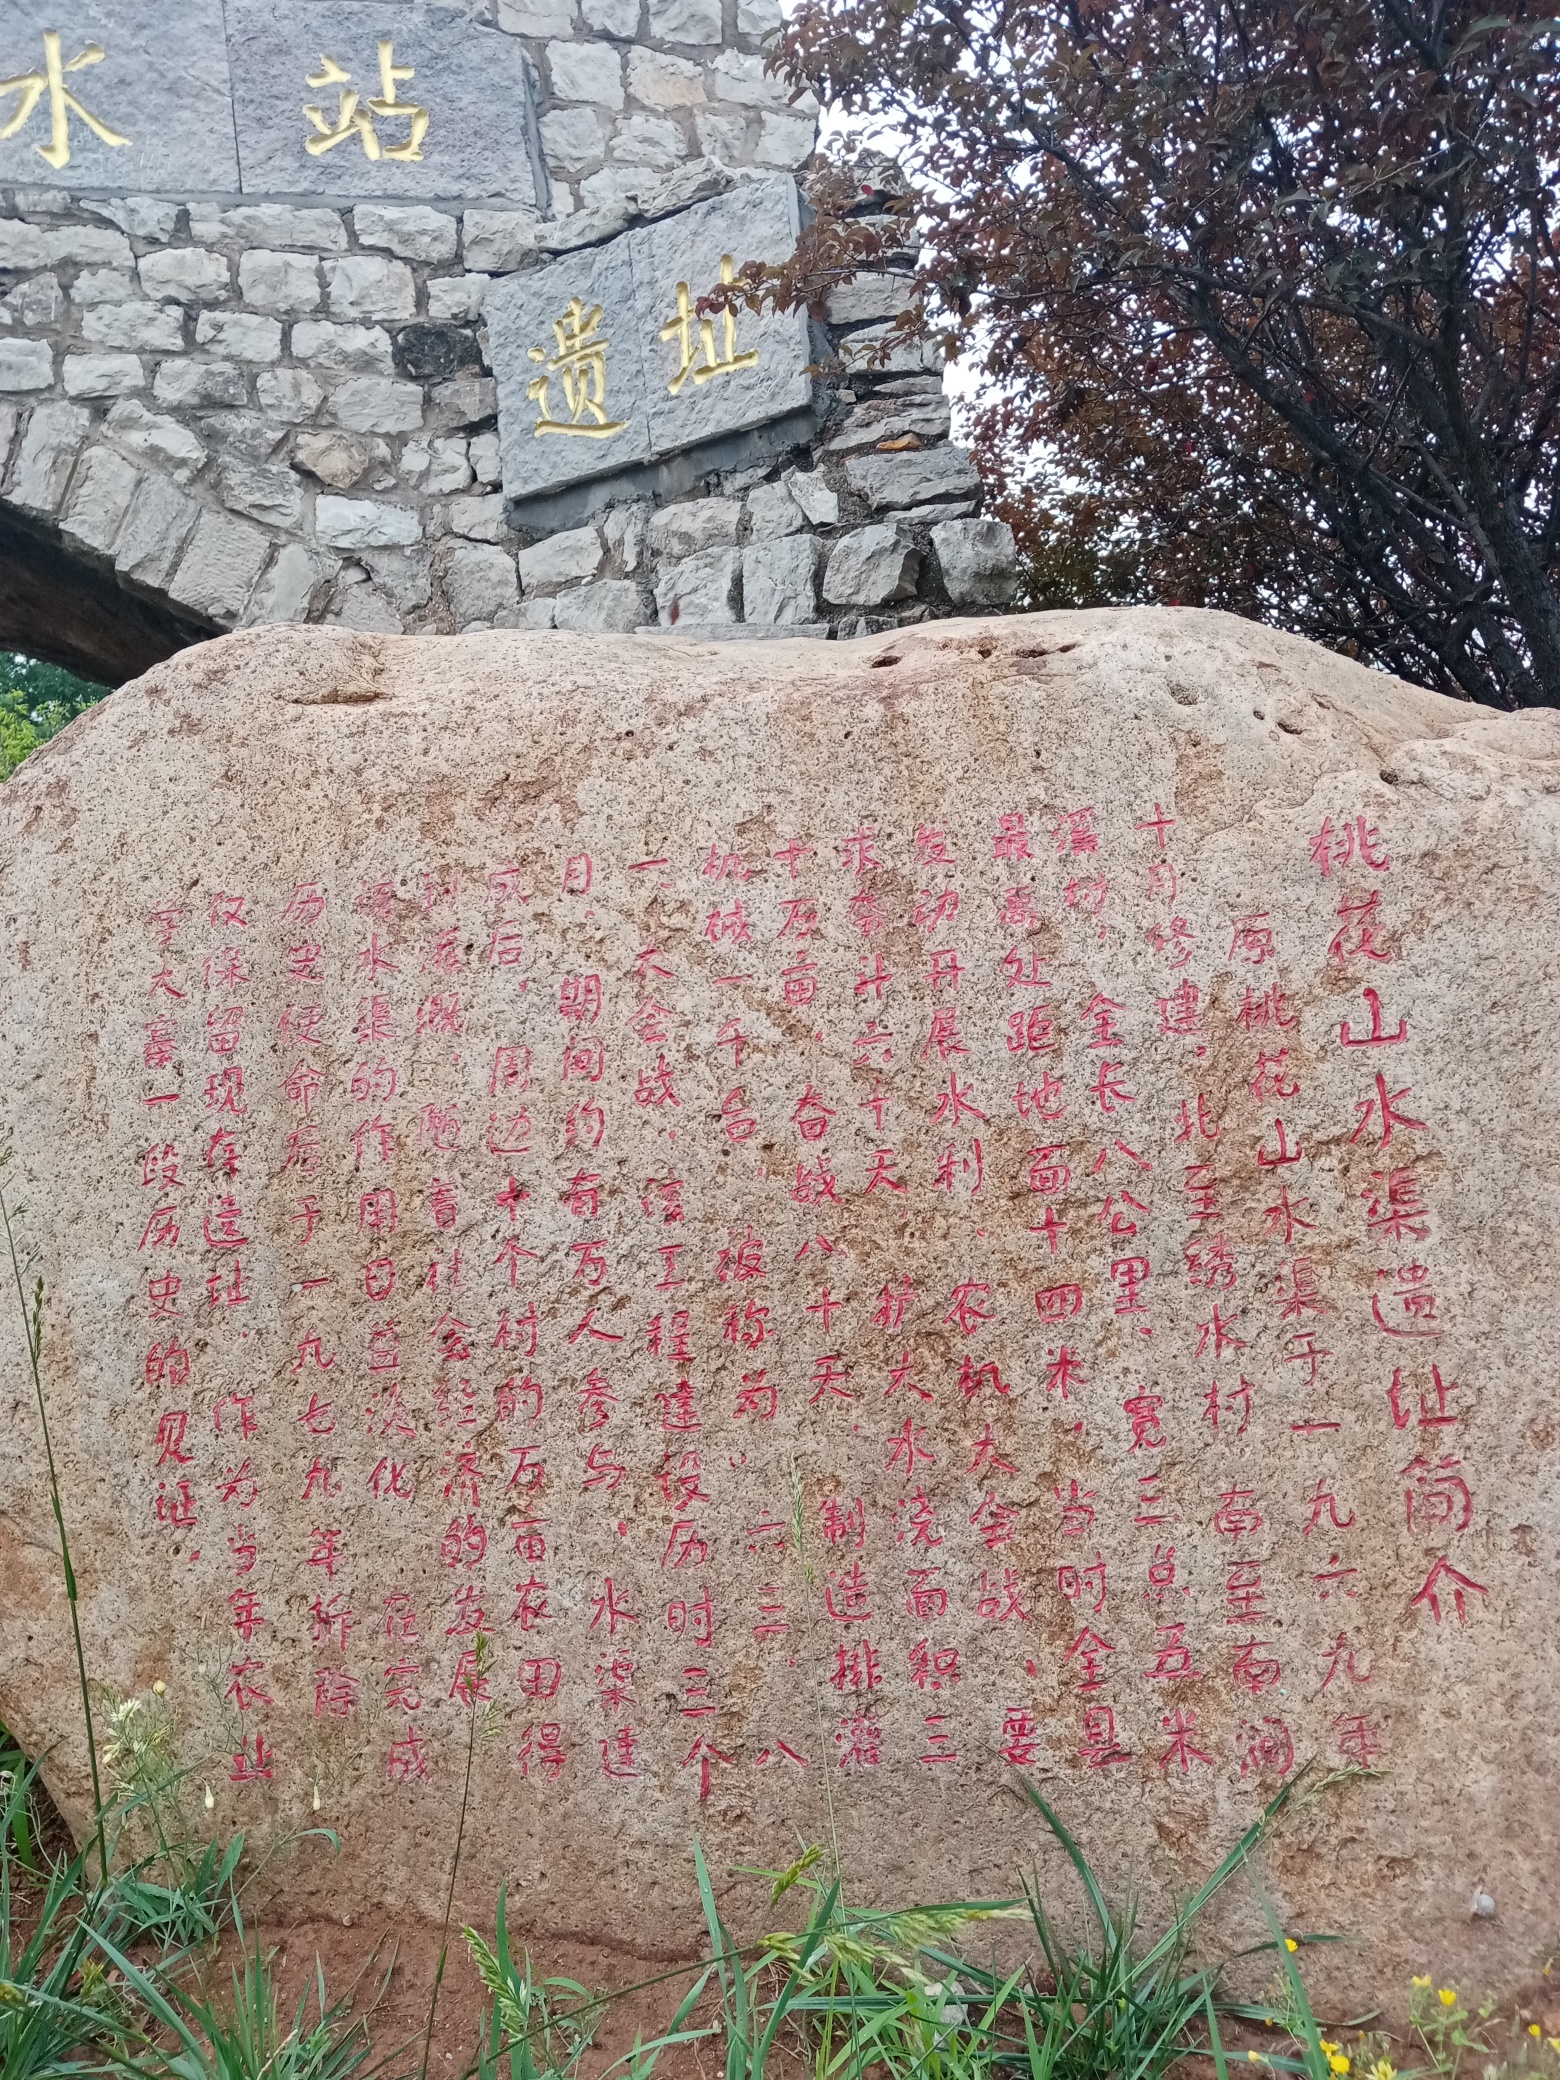 水站
遗址
桃花山水渠遗址简介
原桃花山水渠于一九六九年
十月修建.北至绣水村南至南涧
溪村.全长八公里.宽三点五米
最高处距地面十四米.当时全县
发动开展水利.农机大会战.要
求奋斗六十天.扩大水浇面积三
十万亩.奋战八十天.制造排灌
机械一千台.被称为.六三.八
一.大会战.该工程建设历时三个
月.期间约有万人参与.水渠建
成后.周边十个村的万亩农田得
到灌溉.随着社会经济的发展
该水渠的作用日益淡化.在完成
历史使命后于一九七九年拆除
仅保留现存遗址.作为当年农业
学大寨一段历史的见证.